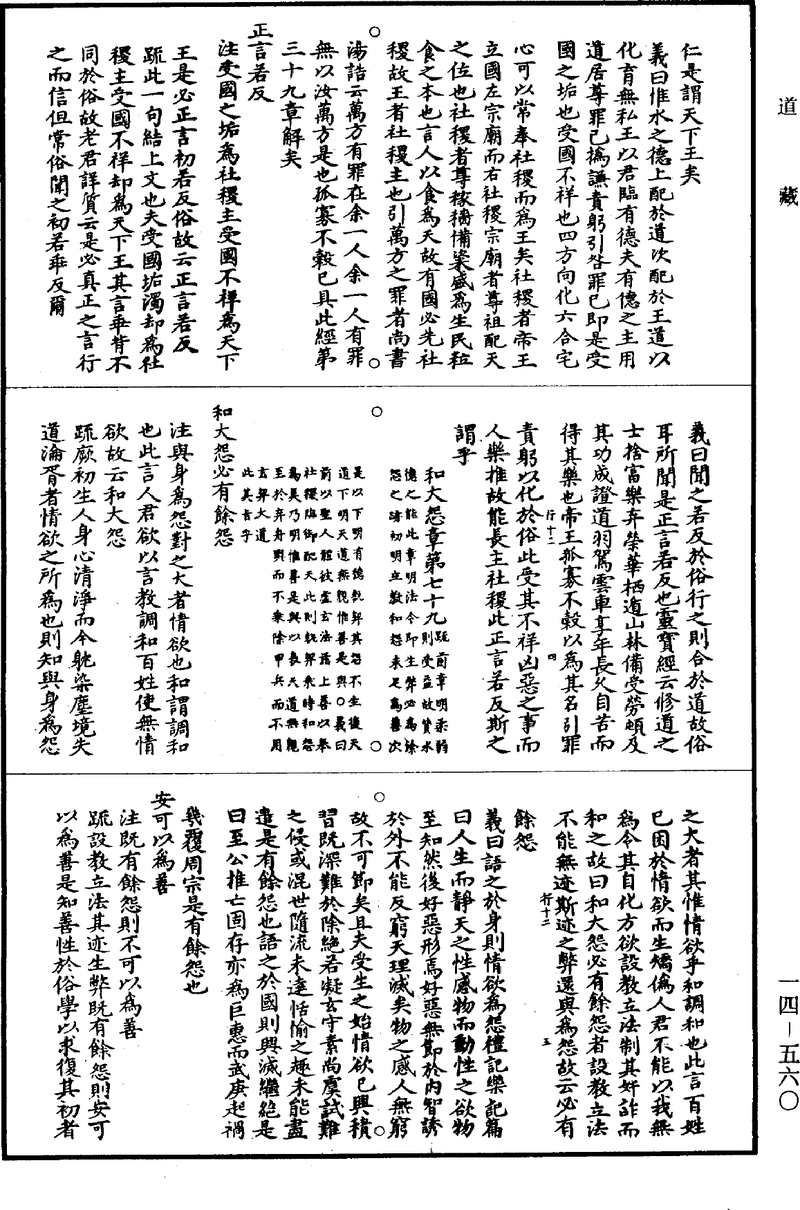 道藏
仁是謂天下王矣
義曰惟水之德上配於道次配於王道以
化育無私王以君臨有德夫有德之主用
道居尊罪己撝謙責躬引咎罪己即是受
國之垢也受國不祥也四方向化六合宅
心可以常奉社稷而為王矣社稷者帝王
立國左宗廟而右社稷宗廟者尊祖配天
之位也社稷者尊稼穡備粢盛為生民粒
食之本也言人以食為天故有國必先社
稷故王者社稷主也引萬方之罪者尚書
湯誥云萬方有罪在余一人余一人有罪
無以汝萬方是也孤寡不穀已具此經第
三十九章解矣
正言若反
注受國之垢為社稷主受國不祥為天下
王是必正言初若反俗故云正言若反
疏此一句結上文也夫受國垢濁却為社
稷主受國不祥却為天下王其言乖背不
同於俗故老君詳質云是必真正之言行
之而信但常俗聞之初若乖反爾
義曰聞之若反於俗行之則合於道故俗
耳所聞是正言若反也靈寶經云修道之
士捨富樂弃榮華栖遁山林備受勞頓及
其功成證道羽駕雲車享年長久自苦而
得其樂也帝王孤寡不穀以為其名引罪
行十二
四
責躬以化於俗此受其不祥凶惡之事而
人樂推故能長主社稷此正言若反斯之
謂乎
和大怨章第七十九
疏前章明柔弱
則受益故贊水
德之能此章明法令即生弊必為餘
怨之跡初明立教和怨未足為善次
是以下明有德執契其怨不生後天
道下明天道無親惟善是與○義曰
前以聖人體彼虛玄法茲上善以奉
社稷臨御配天此則執契乘時和怨
為美乃明惟善是與以表天道無親
至於弃身輿而不乘除甲兵而不用
玄契大道
此其旨乎
和大怨必有餘怨
注與身為怨對之大者情欲也和謂調和
也此言人君欲以言教調和百姓使無情
欲故云和大怨
疏厥初生人身心清淨而今躭染塵境失
道淪胥者情欲之所為也則知與身為怨
之大者其惟情欲乎和調和也此言百姓
已困於情欲而生矯偽人君不能以我無
為令其自化方欲設教立法制其奸詐而
和之故曰和大怨必有餘怨者設教立法
不能無迹斯迹之弊還與為怨故云必有
行十二
五
餘怨
義曰語之於身則情欲為怨禮記樂記篇
曰人生而靜天之性感物而動性之欲物
至知然後好惡形焉好惡無節於內智誘
於外不能反窮天理滅矣物之感人無窮
故不可節矣且夫受生之始情欲已興積
習既深難於除絕若凝玄守素尚虞試難
之侵或混世隨流未達恬愉之趣未能盡
遣是有餘怨也語之於國則興滅繼絕是
曰至公推亡固存亦為巨惠而武庚起禍
幾覆周宗是有餘怨也
安可以為善
注既有餘怨則不可以為善
疏設教立法其迹生弊既有餘怨則安可
以為善是知善性於俗學以求復其初者
一四－五六〇